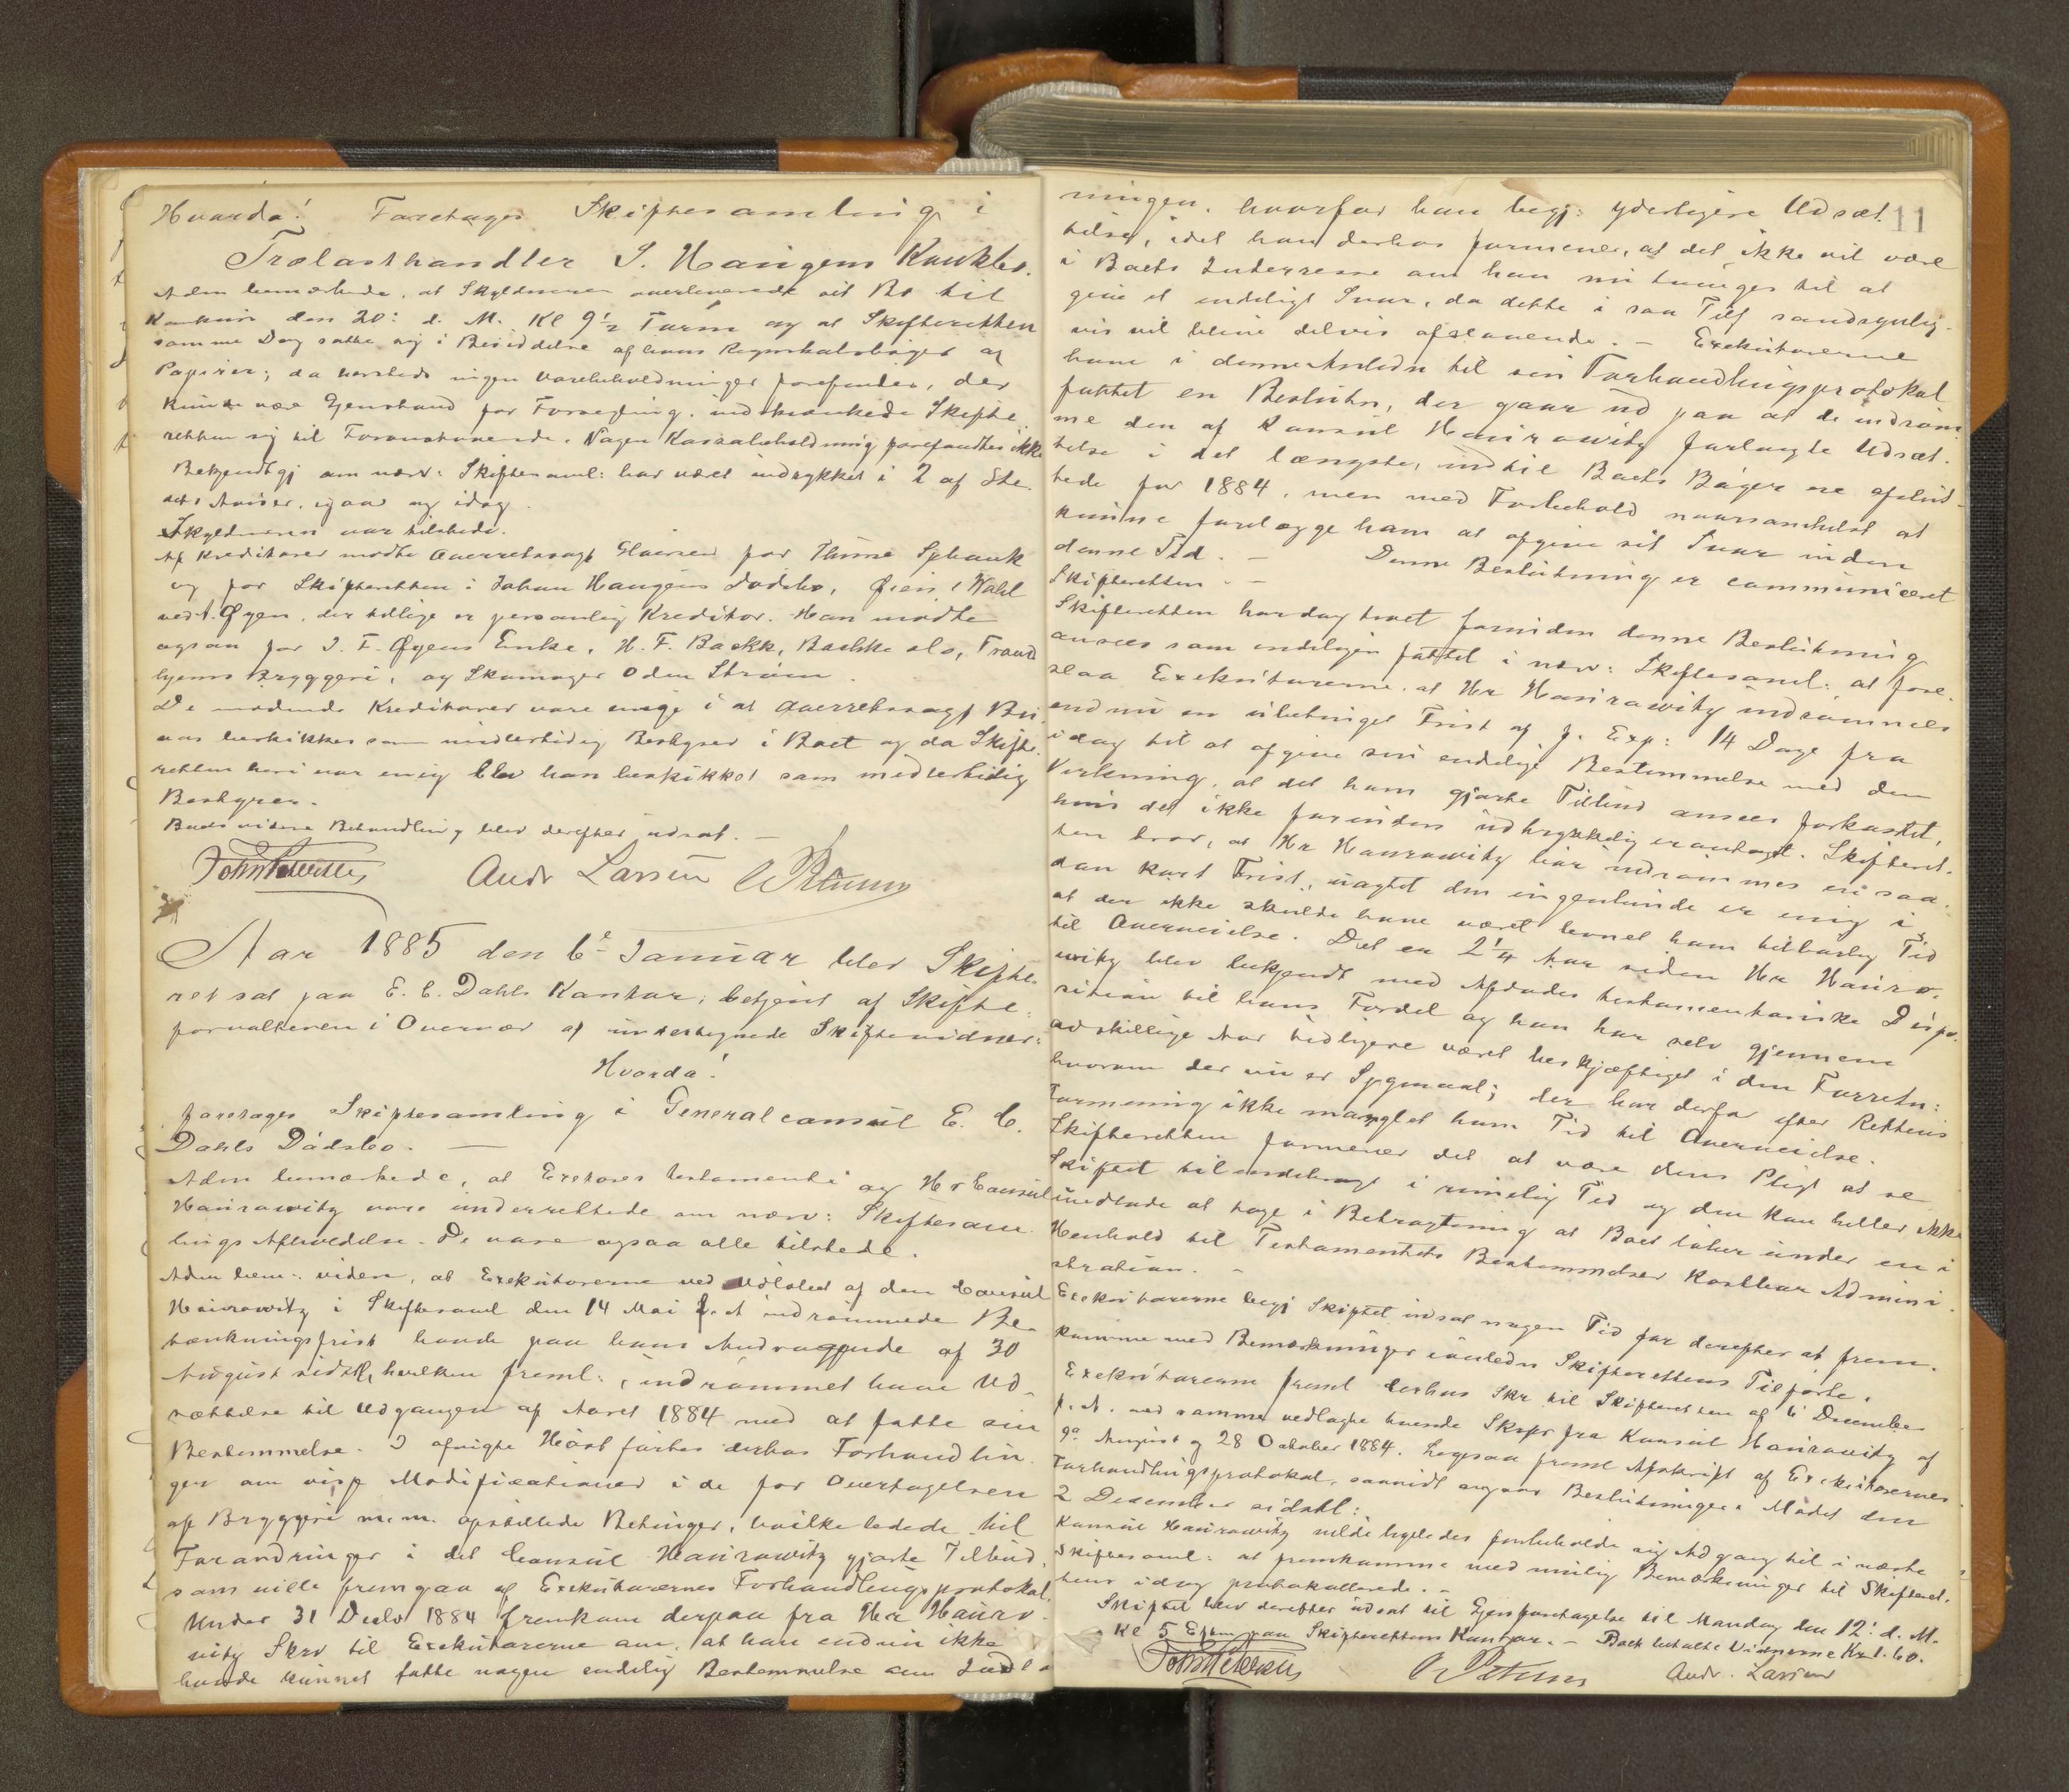 Hvorda! Foretages Skiftesamling i
Trælasthandler S. Haugens Konkbo.
Adm bemærkede, at Skyldneren overleverede sit Bo til
Konkurs den 20: d. M. Kl 9½ Form og at Skifteretten
samme Dag satte sig i Besiddelse af hans Regnskabsbøger og
Papirer; da nogen Varebeholdninger forefandtes, der
kunde være Gjenstand for Forsegling, indskrænkede Skifte
retten sig til Foranstaaende. Nogen Kassabeholdning forefandtes ikke
Bekjendtgj om nærv: Skiftesaml: har været indrykket i 2 af Ste
dets Aviser, igaar og idag.
Skyldneren var tilstede.
Af Kreditorer mødte Overretssagf for Thime Schank
og for Skifteretten i Johan Haugens Dødsbo, Øien & Wahl
ved A. Øyen, der tillige er personlig Kreditor. Han mødte
ogsaa for J. F. Øyens Enke, H. F. Backk, Bachke & Co, Trond
hjems Bryggeri, og Skomager Oden Strøm.
De mødende Kreditorer vare enige i at Overretssagf
var beskikket som midlertidig Bestyrer i Boet og da Skifte
retten heri var enig blev han beskikket som midlertidig
Bestyrer.
Boets videre Behandling blev derefter udsat. –
John Petersen Andr Larsen
Aar 1885 den 6te Januar blev Skifte
ret sat paa E. C. Dahls Kontor, betjent af Skifte
forvalteren i Overvær af undertegnede Skiftevidner:
Hvorda!
foretages Skiftesamling i Generalconsul E. C.
Dahls Dødsbo. –
Adm bemærkede, at Exctores testamenti og Hr Consul
Haurowitz vare underrettede om nærv: Skiftesam
lings Afholdelse. De vare ogsaa alle tilstede.
Adm bem: videre, at Exekutorerne ved Udløbet af den Consul
Haurowitz i Skiftesaml den 14 Mai f. A indrømmede Be
tænkningsfrist havde paa hans Andragende af 30
August sidstl, hvilken freml:, indrømmet ham Ud
sættelse til Udgangen af Aaret 1884 med at fatte sin
Bestemmelse. I afvigte Høst førtes derhos Forhandlin
ger om visse Modificationer i de for Overtagelsen
af Bryggeri m.m. opstillede Betinger, hvilke ledede til
Forandringer i det Consul Haurowitz gjorte Tilbud,
som ville fremgaa af Exekutorernes Forhandlingsprotokol.
Under 31 Decbr 1884 fremkom derpaa fra Hr Hauro
witz Skrv til Exekutorerne om, at han endnu ikke
havde kunnet fatte nogen endelig Bestemmelse om
11
ningen, hvorfor han begj: yderligere Udsæt
telse, idet han derhos formener, at det ikke vil være
i Boets Interresse om han nu tvinges til at
give et endeligt Svar, da dette i saa Tilf sandsynlig
vis vil blive delvis afslaaende. – Exekutorerne
have i denne Anledn til sin Forhandlingsprotokol
fattet en Beslutn, der gaar ud paa at de indrøm
me den af Konsul Haurowitz forlangte Udsæt
telse i det længste, indtil Boets Bøger ere afslut
tede for 1884, men med Forbehold naarsomhelst at
kunne forelægge ham at afgive sit Svar inden
denne Tid. – Denne Beslutning er communiceret
Skifteretten. –
Skifteretten har dog troet forinden denne Beslutning
ansees som endeligen fattet i nærv: Skiftesaml: at fore
slaa Exekutorerne, at Hr Haurowitz indrømmes
endnu en ubetinget Frist af f. Exp: 14 Dage fra
idag til at afgive sin endelige Bestemmelse med den
Virkning, at det ham gjorte Tilbud ansees forkastet,
hvis det ikke forinden udtrykkelig er antaget. Skifteret
ten tror, at Hr Haurowitz bør indrømmes en saa
dan kort Frist, uagtet den ingenlunde er enig i,
at der ikke skulde have været levnet ham tilbørlig Tid
til Overveielse. Det er 2¼ Aar siden Hr Hauro
witz blev bekjendt med Afdødes testamentariske Dispo
sition til hans Fordel og han har selv gjennem
adskillige Aar tidligere været beskjæftiget i den Forretn:
hvorom der nu er Spgmaal; der har derfor efter Rettens
Formening ikke manglet ham Tid til Overveielse.
Skifteretten formener det at være dens Pligt at se
Skiftet tilendebragt i rimelig Tid og den kan heller ikke
undlade at tage i Betragtning at Boet lider under en i
Henhold til Testamentets Bestemmelser kostbar Admini
stration. –
Exekutorerne begj Skiftet indsat nogen Tid for derefter at frem
komme med Bemærkninger i Skifterettens Tilførte.
Exekutorerne freml derhos Skr til Skifteretten af 6 December
f. A. ved samme vedlagte tvende Skr fra Konsul Haurowitz af
9de August og 28 Oktober 1884. Ligesaa freml Afskrift af Exekutorernes
Forhandlingsprotokol, saavidt angaar Beslutninger i Mødet den
2 December sidstl:
Konsul Haurowitz vilde ligeledes forbeholde sig Adgang til i næste
Skiftesaml: at fremkomme med mulig Bemærkninger til Skifteret
tens idag protokollerede. –
Skiftet blev derefter udsat til Gjenforetagelse til Mandag den 12: d. M.
Kl 5 Eftm paa Skifterettens Kontor. – Boet betalte Vidnerne Kr 1.60.
John Petersen Andr. Larsen